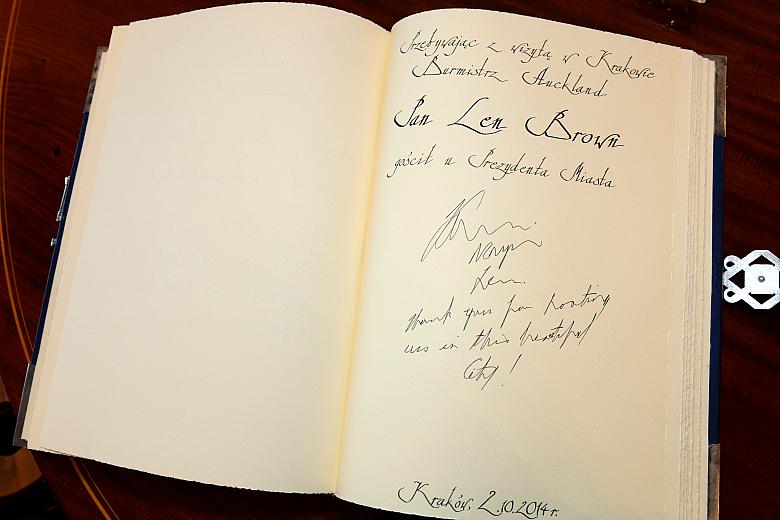 Przebywając z wizytą w Krakowie
Burmistrz Auckland
Pan Len Brown
gościł u Prezydenta Miasta
Len.
Thank you for hosting
us in this beautiful
City!
Kraków, 2.10.2014r.